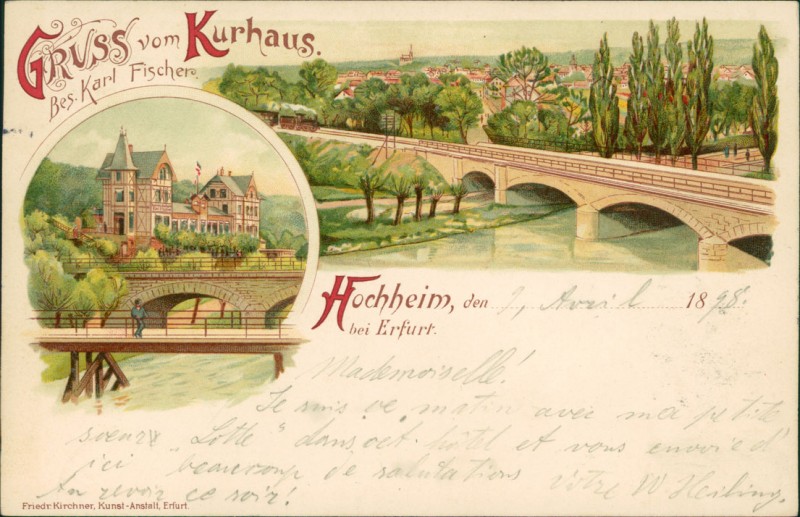 Gruss vom Kurhaus.
Bes. Karl Fischer.
Hochheim, den 9. April 1898.
bei Erfurt.
Mademoiselle!
Je suis ce matin avec ma petite
soeur "Lotte" dans cet hôtel et vous envoie d'
ici beaucoup de salutations Vôtre W Heiling.
Au revoir ce soir!
Friedr. Kirchner, Kunst-Anstalt, Erfurt.